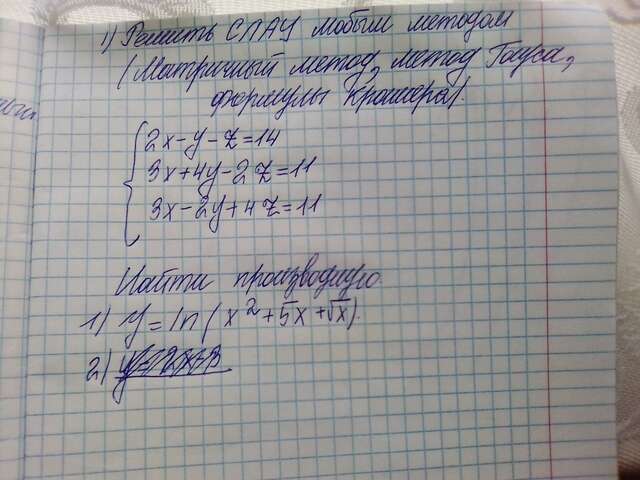 1) Решить СЛАУ любым методом
(Матричный метод, метод Гауса,
формулы Крамера).
2x-y-z=14
3x+4y-2z=11
3x-2y+4z=11
Найти производную.
1) y=ln(x²+5x+√x).
2)